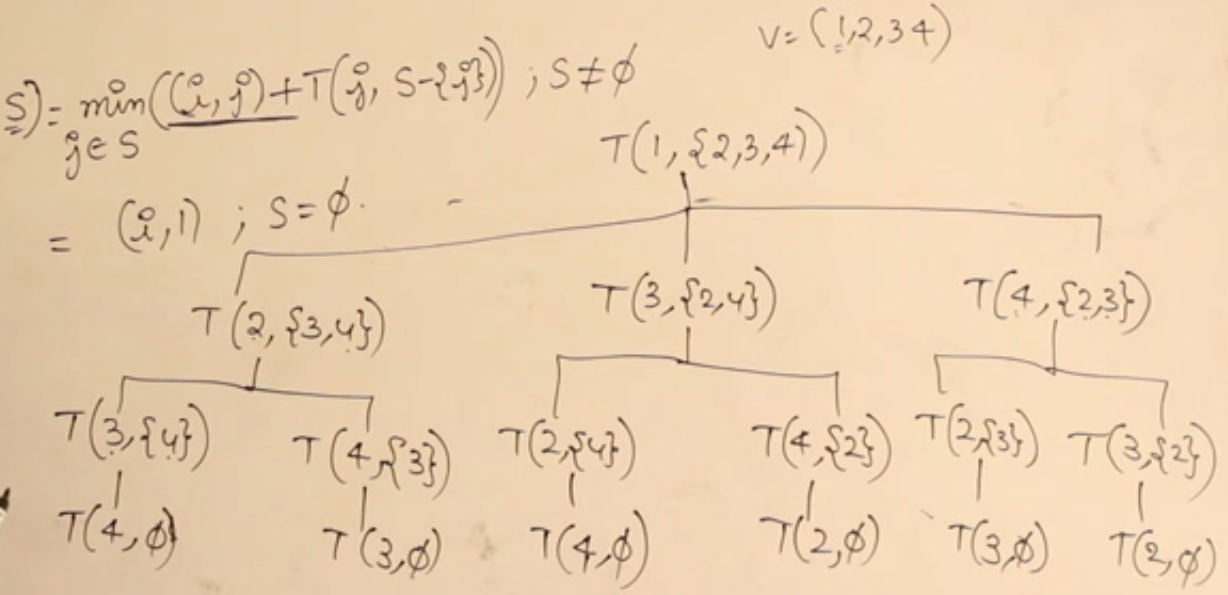 V= (1,2,3 4)
S)= min((i, j)+T(j, S-{j})) ; S≠ϕ
j∈S
T(1, {2,3,4))
= (i,1) ; S=ϕ.
T(2, {3,4}) T(3, {2,4}) T(4, {2,3})
T(3,{4}) T(4,{3}) T(2,{4}) T(4,{2}) T(2,{3}) T(3,{2})
T(4,ϕ) T(3,ϕ) T(4,ϕ) T(2,ϕ) T(3,ϕ) T(2,ϕ)